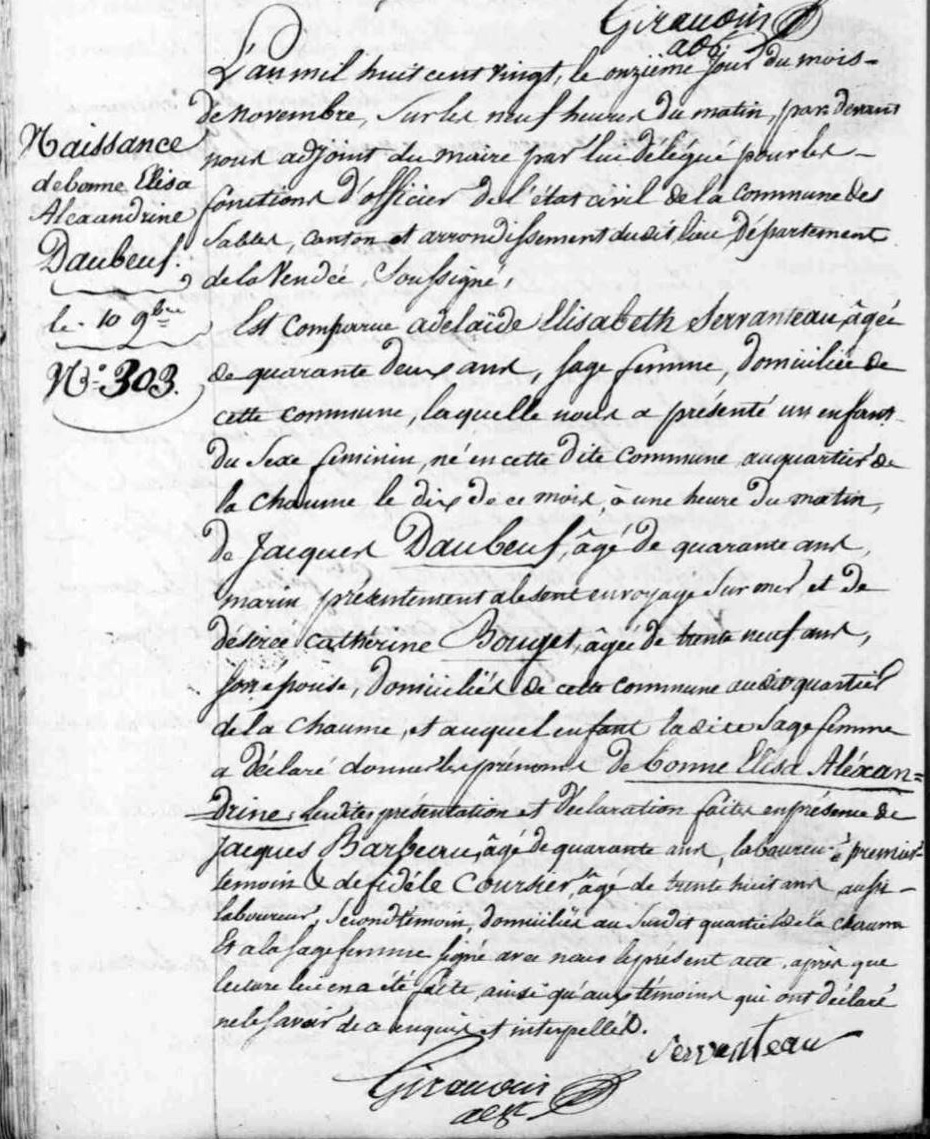 Giraudin
adj.
L'an mil huit cent vingt, le onzième jour du mois
de novembre, sur les neuf heures du matin, par devant
nous adjoint du maire par lui délégué pour les
fonctions d'officier de l'état civil de la commune des
Sables, canton et arrondissement du dit lieu Département
de la Vendée, Soussigné,
Naissance
de bonne Elisa
Alexandrine
Daubeuf.
le 10 9bre
N° 303.
Est comparue adelaïde Elisabeth Servanteau, âgée
de quarante deux ans, sage femme, domiciliée de
cette commune, laquelle nous a présenté un enfant
du Sexe feminin, né en cette dite commune au quartier de
la chaume le dix de ce mois, à une heure du matin,
de Jacques Daubeuf, âgé de quarante ans,
marin présentement absent en voyage sur mer, et de
désirée cathérine Bouget, âgée de trente neuf ans,
son épouse, domiciliés de cette commune audit quartier
de la chaume, et auquel enfant la dite Sage femme
a déclaré donner les prénoms de bonne Elisa Aléxan=
drine; lesdites présentation et déclaration faites en présence de
Jacques Barbeau, âgé de quarante ans, laboureur, premier
témoin & de fidéle Coursier, âgé de trente huit ans aussi
laboureur, Second témoin, domiciliés au susdit quartier de la chaume
Et a la sage femme signé avec nous le présent acte, après que
lecture lui en a été faite, ainsi qu'aux témoins qui ont déclaré
ne le savoir de ce enquis et interpellés.
Servanteau
Giraudin
adj.